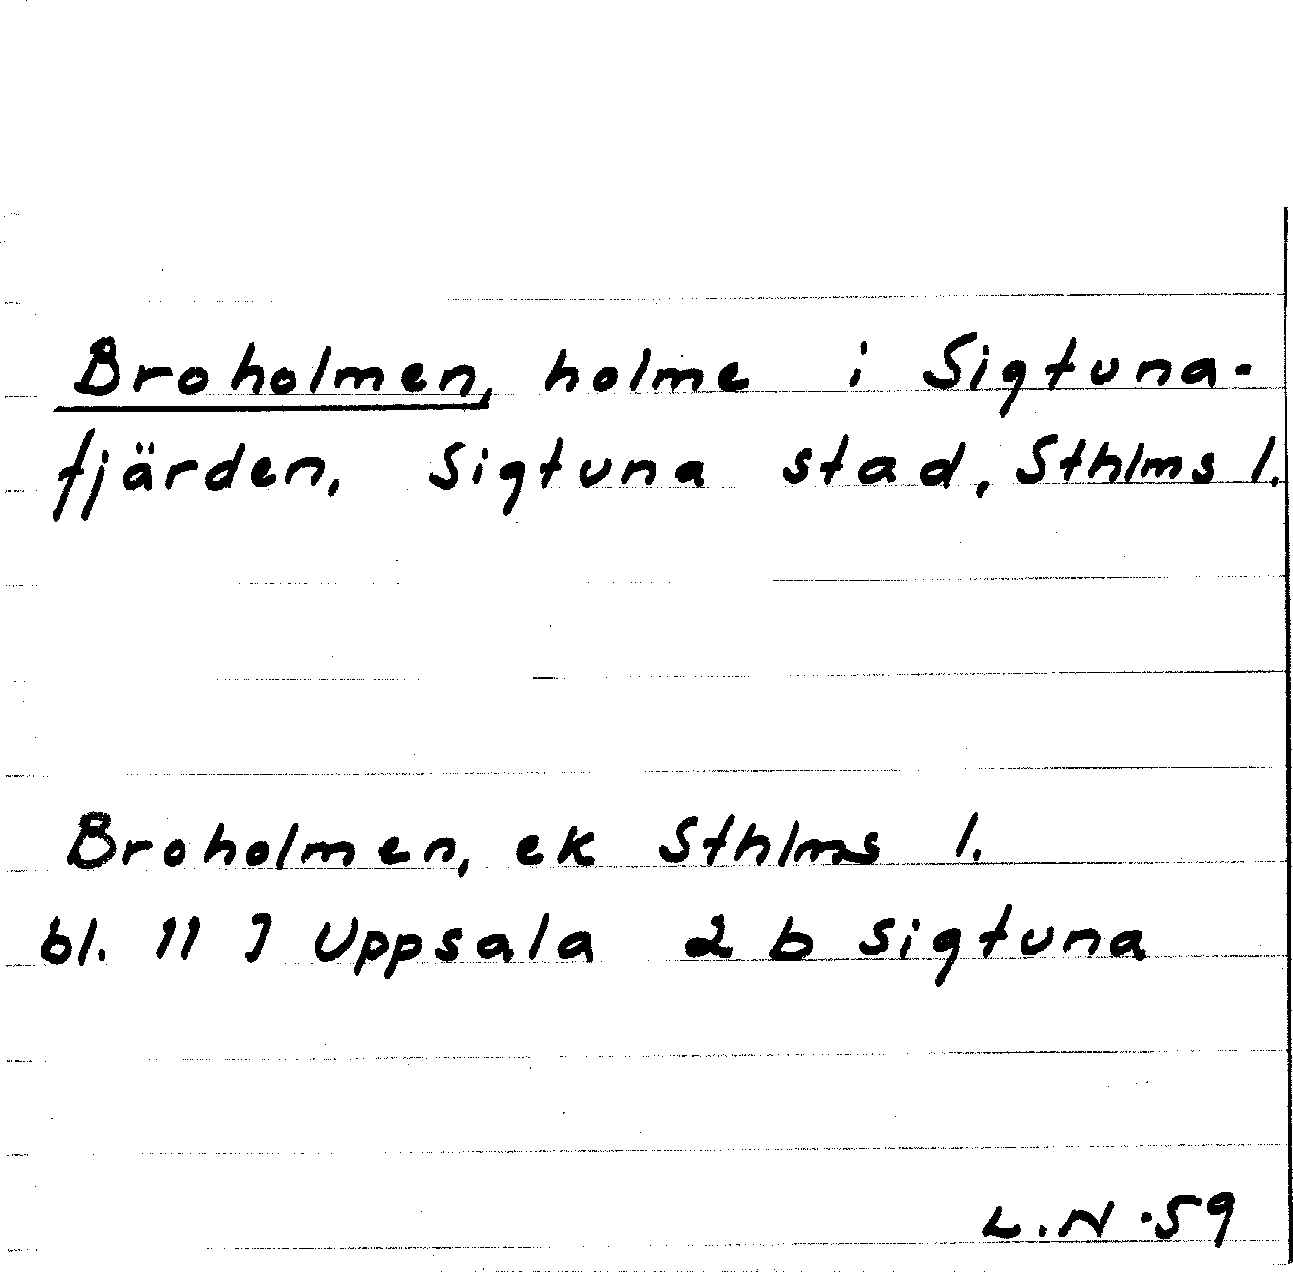 Broholmen, holme i Sigtuna-
fjärden, Sigtuna stad, Sthlms l.
Broholmen, ek Sthlms l.
bl. 11 I Uppsala 2 b Sigtuna
L.N. 59